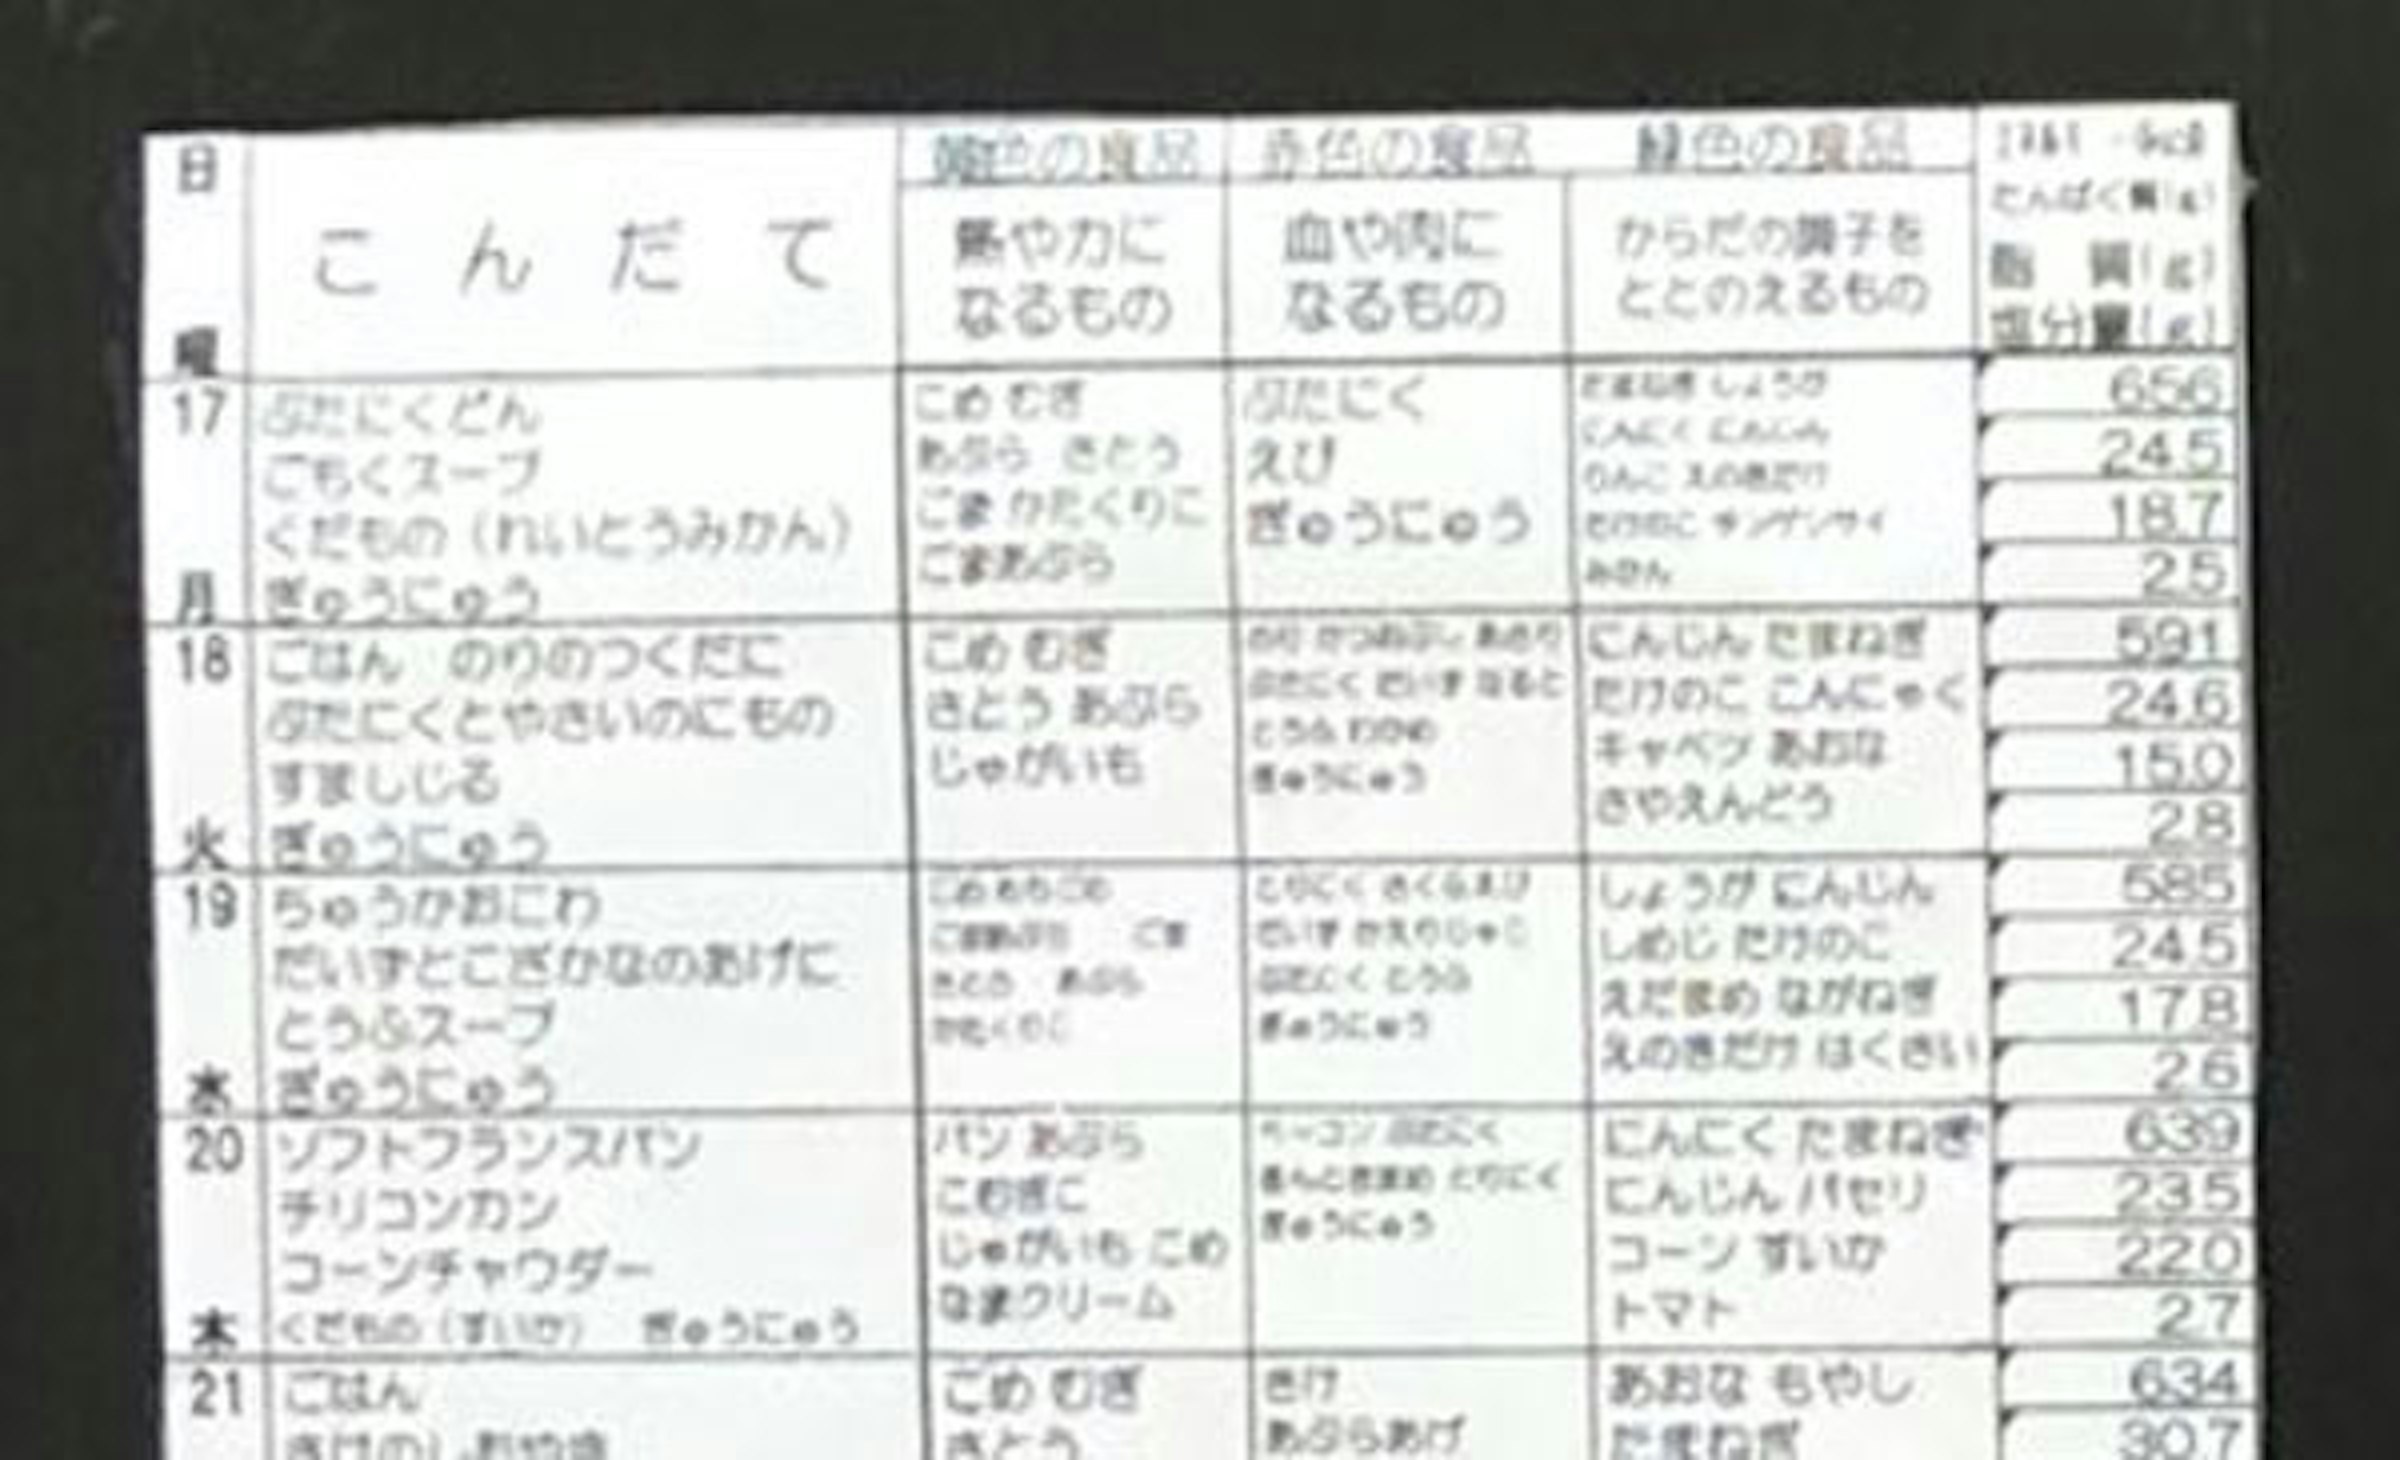 日
曜
こんだて
黄色の食品
赤色の食品
緑色の食品
熱や力に
なるもの
血や肉に
なるもの
からだの調子を
ととのえるもの
たんぱく質(g)
脂 質(g)
塩分量(g)
17
月
ぶたにくどん
ごもくスープ
くだもの（れいとうみかん）
ぎゅうにゅう
こめ むぎ
あぶら さとう
ごま かたくりこ
ごまあぶら
ぶたにく
えび
ぎゅうにゅう
たまねぎ しょうが
にんにく にんじん
りんご えのきだけ
たけのこ チンゲンサイ
みかん
656
24.5
18.7
2.5
18
火
ごはん のりのつくだに
ぶたにくとやさいのにもの
すましじる
ぎゅうにゅう
こめ むぎ
さとう あぶら
じゃがいも
のり かつおぶし あさり
ぶたにく だいず なると
とうふ わかめ
ぎゅうにゅう
にんじん たまねぎ
たけのこ こんにゃく
キャベツ あおな
さやえんどう
591
24.6
15.0
2.8
19
水
ちゅうかおこわ
だいずとこざかなのあげに
とうふスープ
ぎゅうにゅう
こめ もちごめ
ごまあぶら ごま
さとう あぶら
かたくりこ
とりにく さくらえび
だいず かえりじゃこ
ぶたにく とうふ
ぎゅうにゅう
しょうが にんじん
しめじ たけのこ
えだまめ ながねぎ
えのきだけ はくさい
585
24.5
17.8
2.6
20
木
ソフトフランスパン
チリコンカン
コーンチャウダー
くだもの（すいか） ぎゅうにゅう
パン あぶら
こむぎこ
じゃがいも こめ
なまクリーム
ベーコン ぶたにく
きんときまめ とりにく
ぎゅうにゅう
にんにく たまねぎ
にんじん パセリ
コーン すいか
トマト
639
23.5
22.0
2.7
21
ごはん
さけのしおやき
こめ むぎ
さとう
さけ
あぶらあげ
あおな もやし
たまねぎ
634
30.7